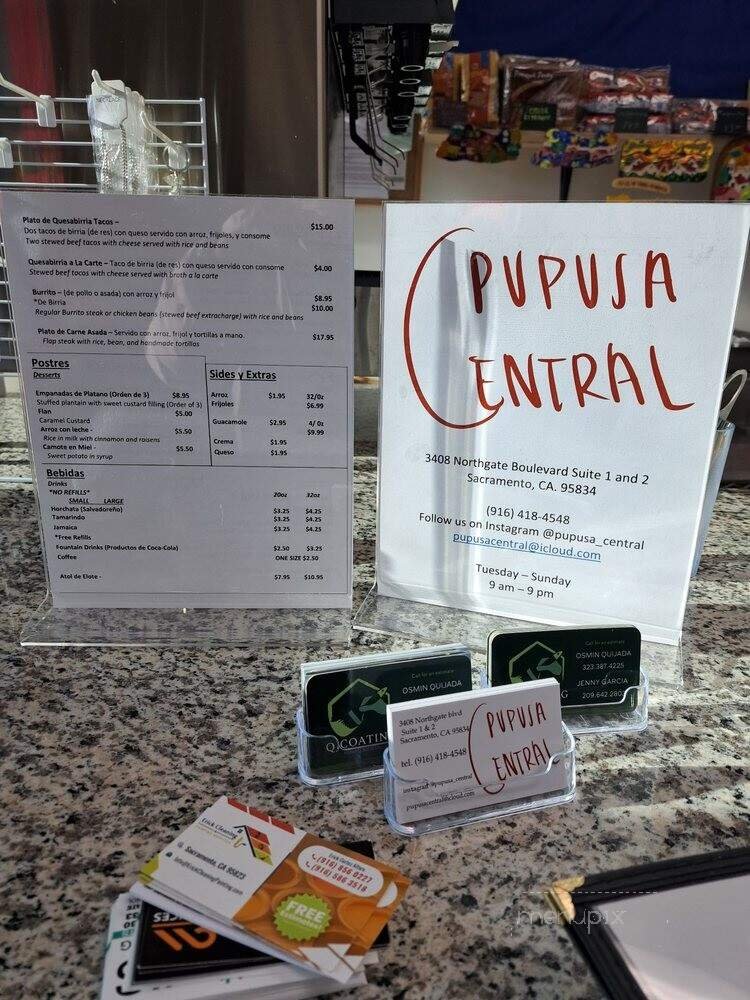 Plato de Quesabirria Tacos –
Dos tacos de birria (de res) con queso servido con arroz, frijoles, y consome $15.00
Two stewed beef tacos with cheese served with rice and beans
Quesabirria a La Carte – Taco de birria (de res) con queso servido con consome $4.00
Stewed beef tacos with cheese served with broth a la carte
Burrito – (de pollo o asada) con arroz y frijol $8.95
*De Birria $10.00
Regular Burrito steak or chicken beans (stewed beef extracharge) with rice and beans
Plato de Carne Asada – Servido con arroz, frijol y tortillas a mano. $17.95
Flap steak with rice, bean, and handmade tortillas
Postres
Desserts
Empanadas de Platano (Orden de 3) $8.95
Stuffed plantain with sweet custard filling (Order of 3)
Flan $5.00
Caramel Custard
Arroz con leche - $5.50
Rice in milk with cinnamon and raisens
Camote en Miel - $5.50
Sweet potato in syrup
Sides y Extras
Arroz $1.95 32/0z
Frijoles $6.99
Guacamole $2.95 4/ 0z
$9.99
Crema $1.95
Queso $1.95
Bebidas
Drinks
*NO REFILLS* 20oz 32oz
SMALL LARGE
Horchata (Salvadoreño) $3.25 $4.25
Tamarindo $3.25 $4.25
Jamaica $3.25 $4.25
*Free Refills
Fountain Drinks (Productos de Coca-Cola) $2.50 $3.25
Coffee ONE SIZE $2.50
Atol de Elote - $7.95 $10.95
PUPUSA
CENTRAL
3408 Northgate Boulevard Suite 1 and 2
Sacramento, CA. 95834
(916) 418-4548
Follow us on Instagram @pupusa_central
pupusacentral@icloud.com
Tuesday – Sunday
9 am – 9 pm
OSMIN QUIJADA
Q COATIN
Call for an estimate
OSMIN QUIJADA
323.387.4225
JENNY GARCIA
209.642.280
G
3408 Northgate blvd
Suite 1 & 2
Sacramento, CA 95834
tel. (916) 418-4548
instagram @pupusa_central
pupusacentral@icloud.com
PUPUSA
CENTRAL
Erick Cleaning
Sacramento, CA 95823
(916) 956 0227
(916) 586 3518
FREE
menupix